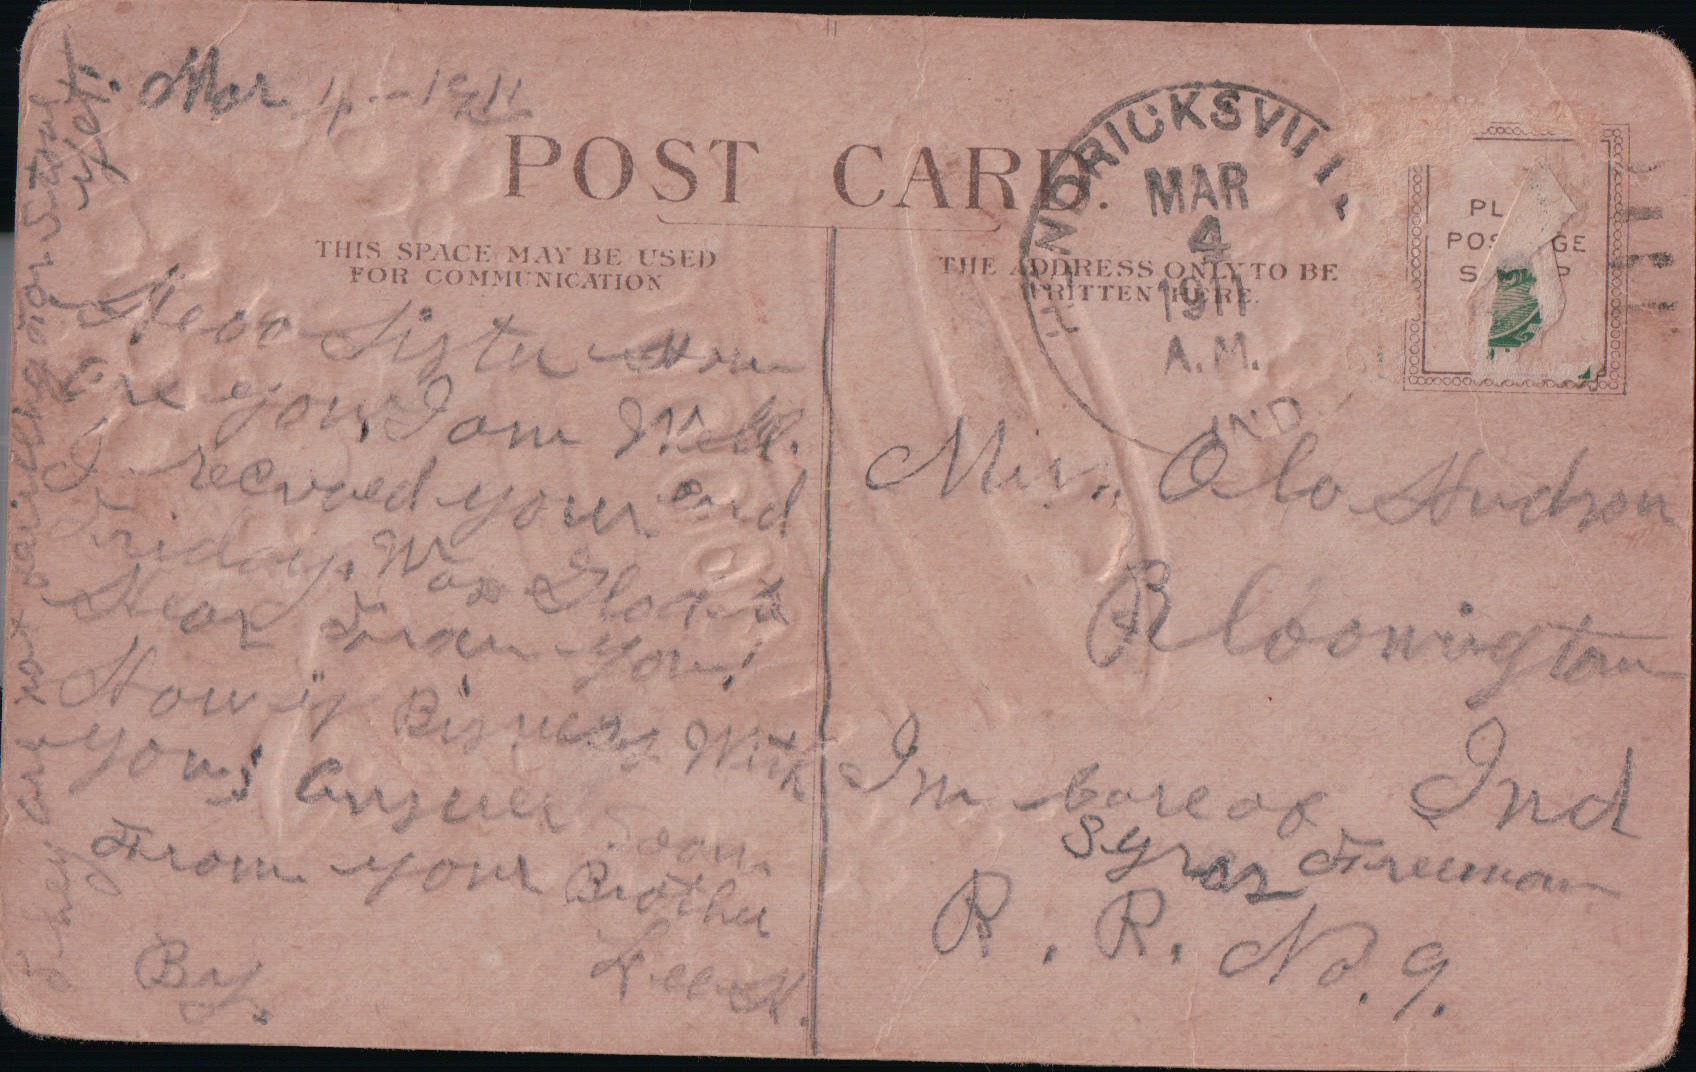 Mar 4 - 1911
POST CARD.
THIS SPACE MAY BE USED
FOR COMMUNICATION
THE ADDRESS ONLY TO BE
WRITTEN HERE.
HENDRICKSVILL
MAR
4
1911
A.M.
IND
PL
POS GE
S P
Sister How
are you, I am Well.
I recvaed your card
Friday. Was Glad to
Hear From you!
How is Bisness With
you; answer Soon
From your Brother
Lee H.
By.
They are not
yet.
Miss. Olo Hudson
Bloomington
Ind
In care of
Syras Freeman
R. R. No. 9.